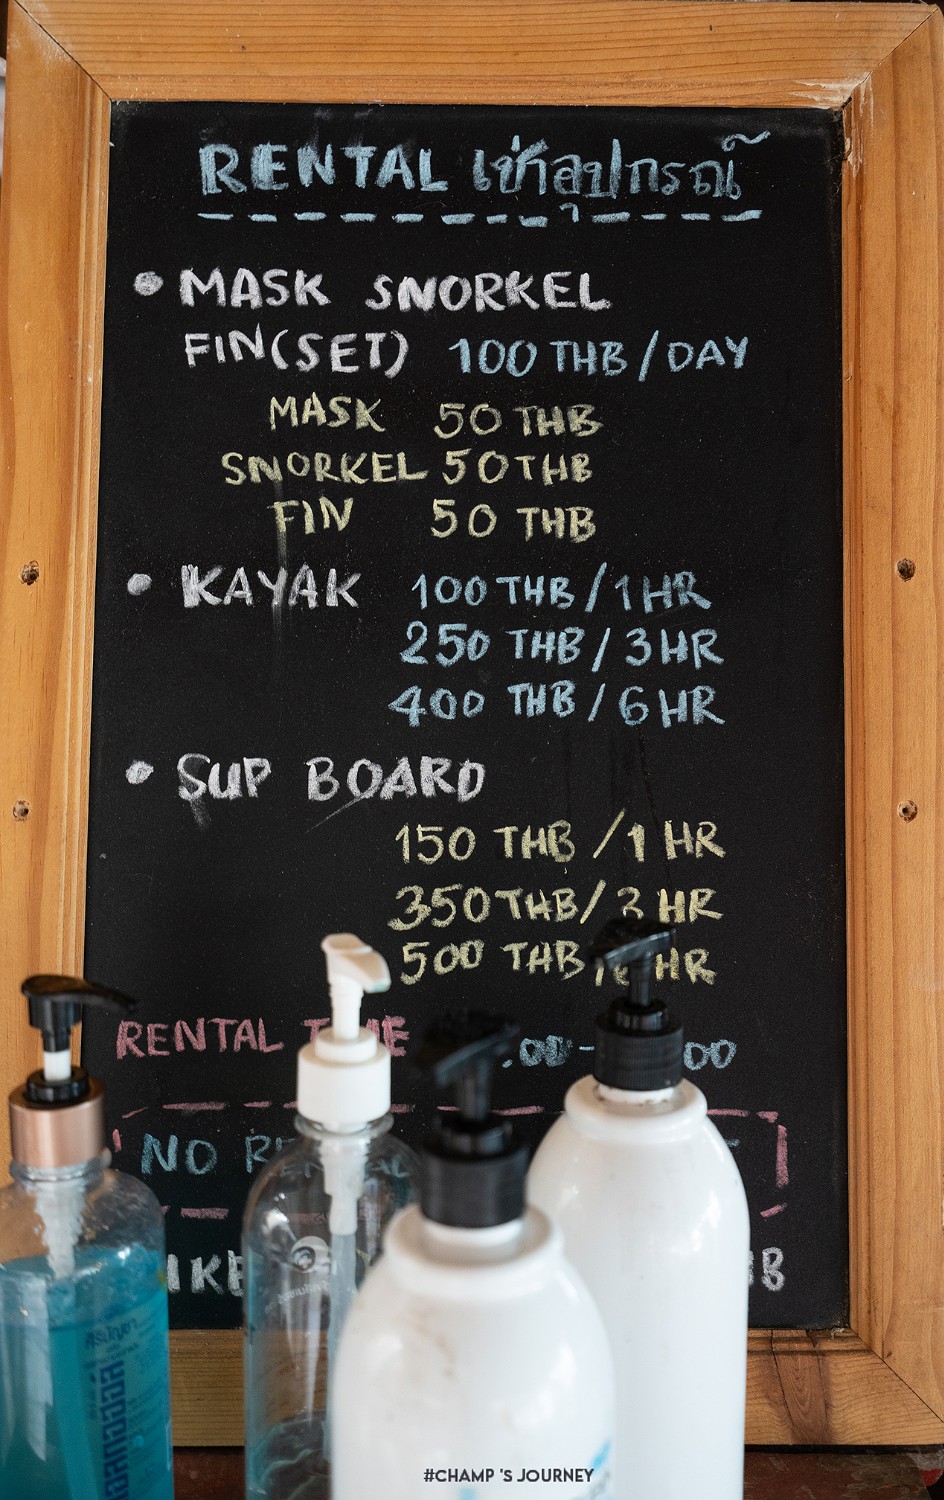 RENTAL เช่าอุปกรณ์
• MASK SNORKEL
FIN(SET) 100 THB/DAY
MASK 50 THB
SNORKEL 50 THB
FIN 50 THB
• KAYAK 100 THB/1HR
250 THB/3HR
400 THB/6HR
• SUP BOARD
150 THB/1 HR
350 THB/3 HR
500 THB/ HR
RENTAL TIME .00- 00
NO RENTAL
#CHAMP 'S JOURNEY